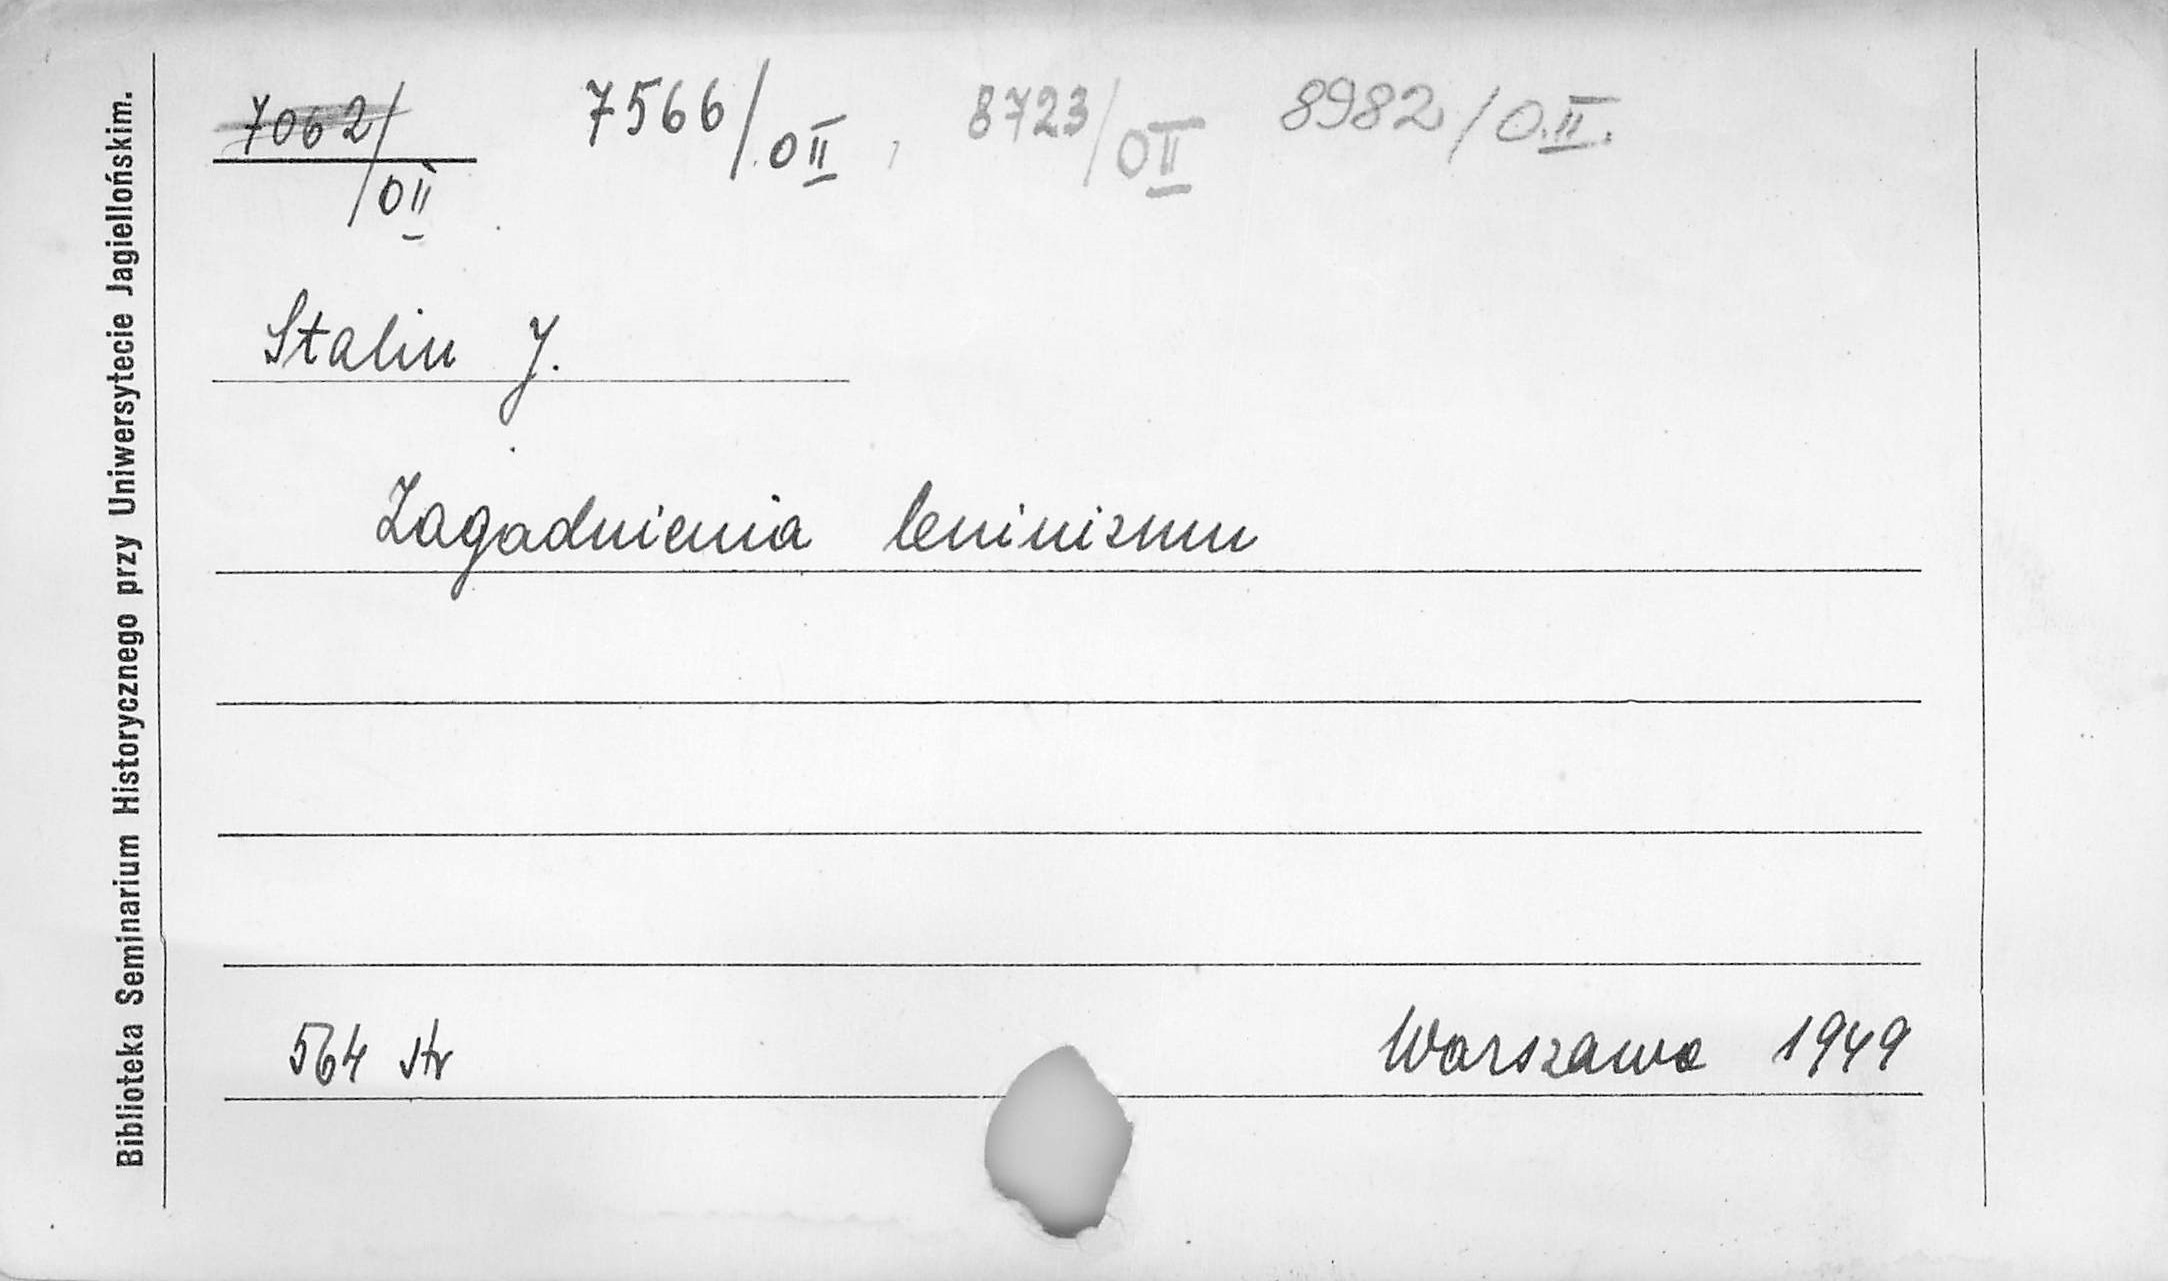 7062/OII 7566/OII, 8723/OII 8982/O.II.
Stalin J.
Zagadnienia leninizmu
564 str Warszawa 1949
Biblioteka Seminarium Historycznego przy Uniwersytecie Jagiellońskim.